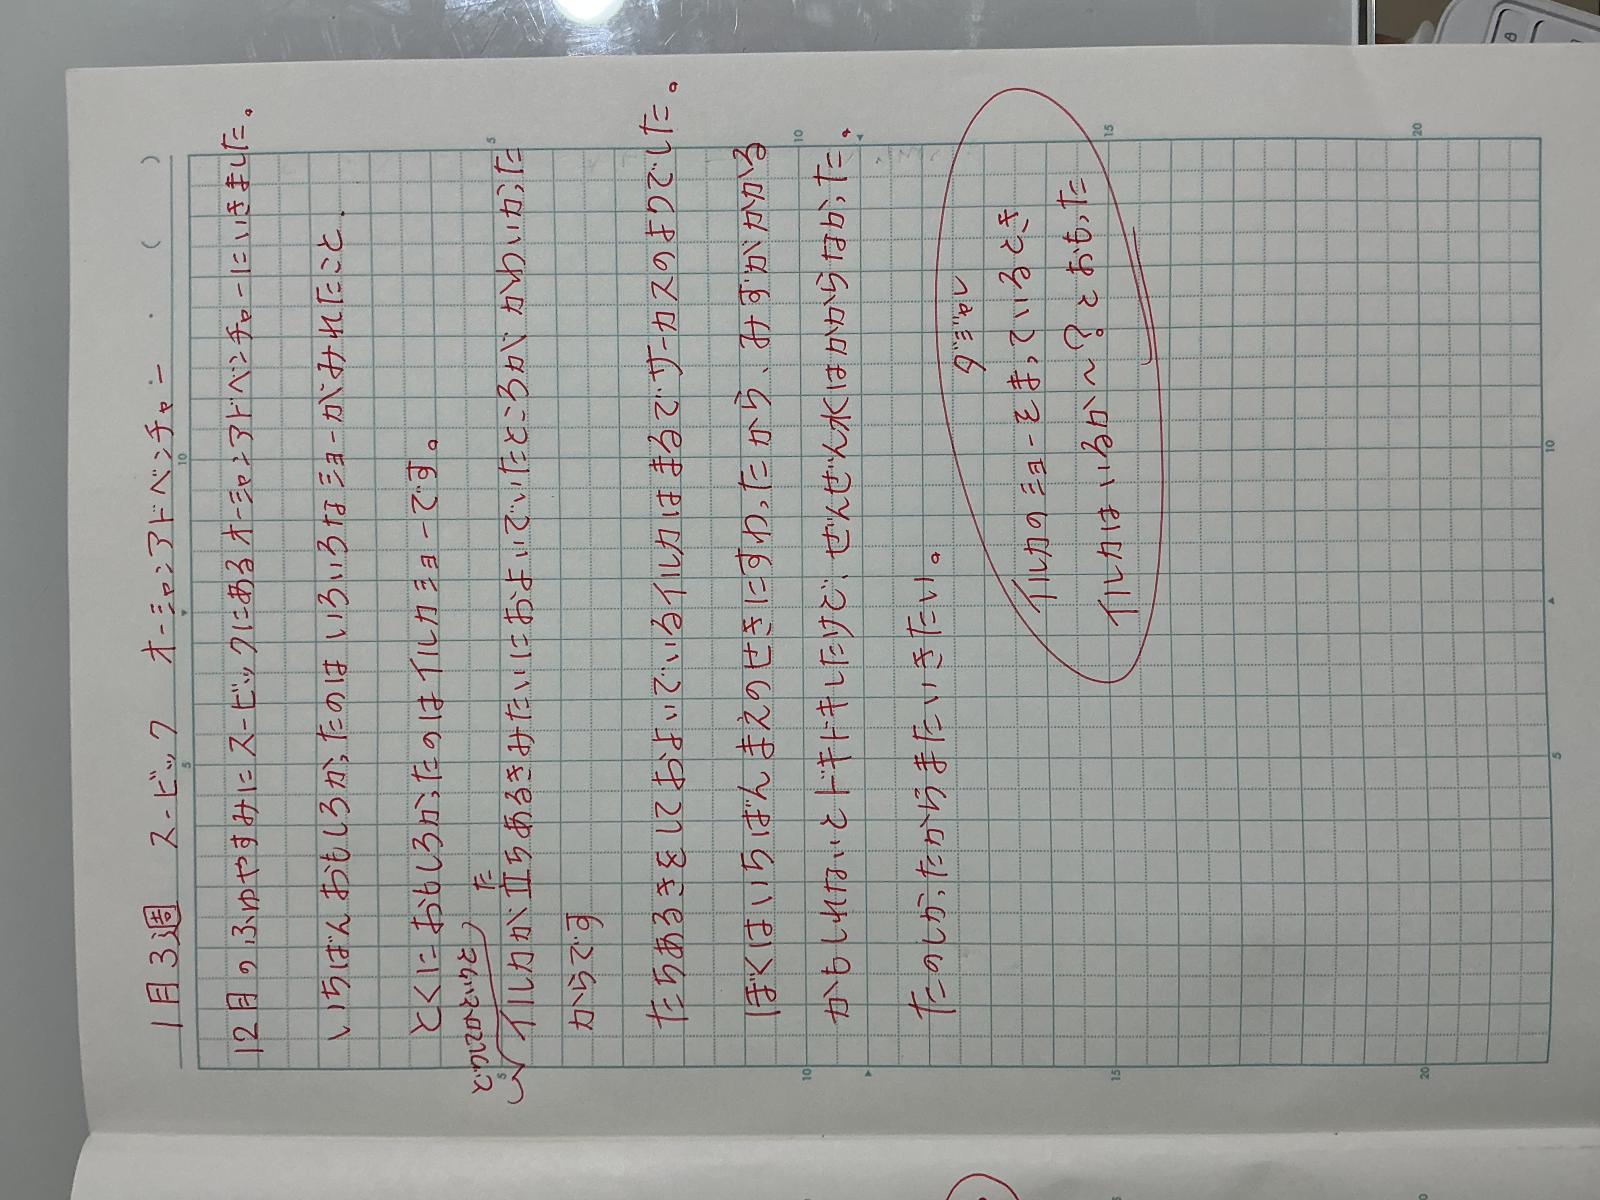 1月3週 スービック オーシャンアドベンチャー
( )
12月のふゆやすみにスービックにあるオーシャンアドベンチャーにいきました。
いちばんおもしろかったのは いろいろなショーがみれたこと。
とくにおもしろかったのはイルカショーです。
た
イルカが立ちあるきみたいにおよいでいたところが、かわいかった
からです
たちあるきをしておよいでいるイルカはまるでサーカスのようでした。
ぼくはいちばんまえのせきにすわったから、みずがかかる
かもしれないとドキドキしたけど、ぜんぜん水はかからなかった。
たのしかったからまたいきたい。
イルカのショーをまっているとき
イルカはいるか〜?とおもった
5
10
5
10
15
20
5
10
15
20
5
10